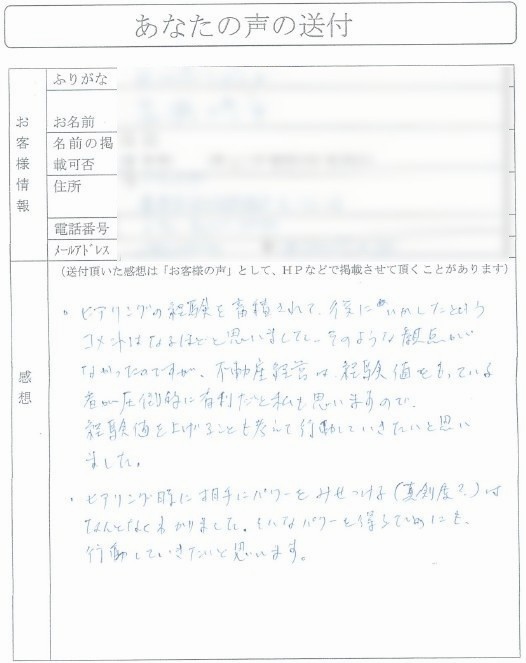 あなたの声の送付
ふりがな
お客様情報
お名前
名前の掲
載可否
住所
電話番号
メールアドレス
(送付頂いた感想は「お客様の声」として、HPなどで掲載させて頂くことがあります)
感想
・ヒアリングの経験を蓄積されて、後に いかしたという
コメントはなるほどと思いましてし、そのような観点が
なかったのですが、不動産経営は、経験値をもっている
者が圧倒的に有利だと私も思いますので、
経験値を上げることも考えて行動していきたいと思い
ました。
・ヒアリング時に相手にパワーをみせつける(真剣度?)は
なんとなくわかりました。そんなパワーを得るためにも、
行動していきたいと思います。